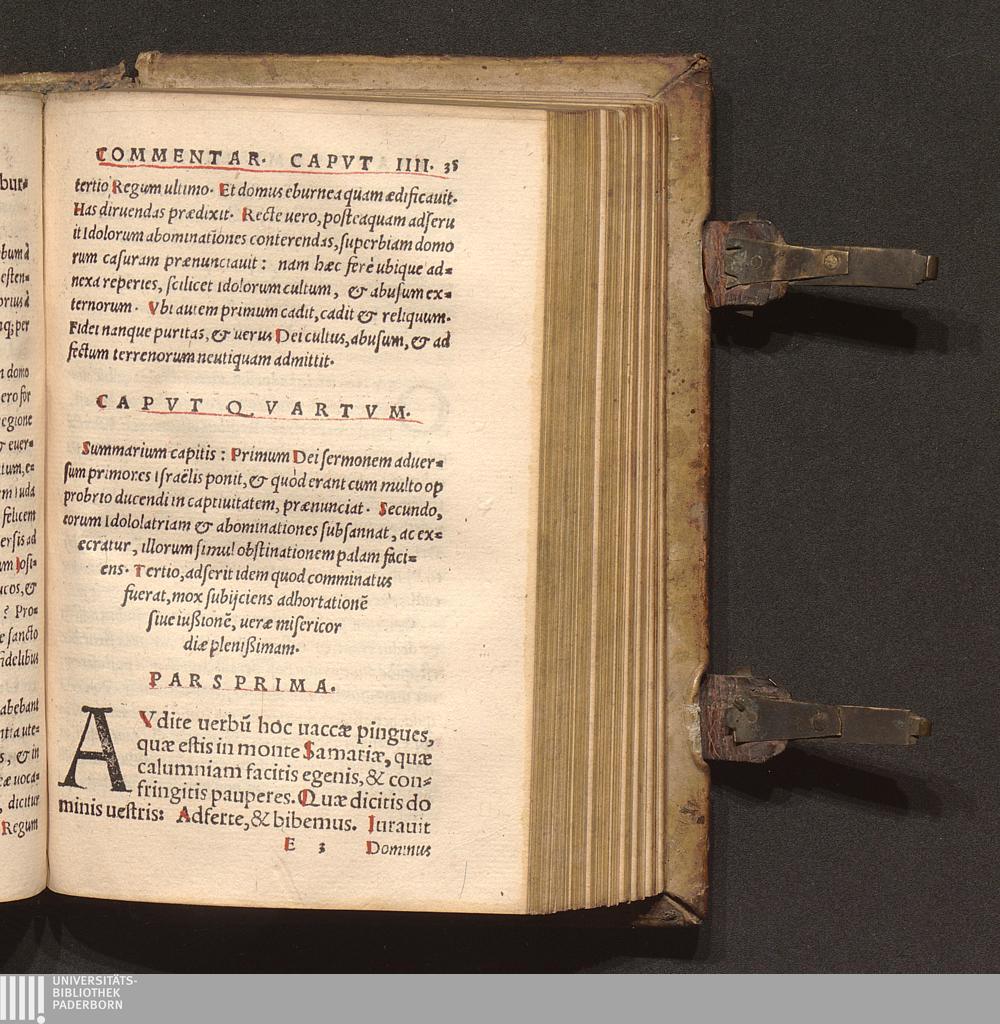 COMMENTAR. CAPVT IIII. 35
tertio Regum ultimo. Et domus eburnea quam ædificauit.
Has diruendas prædixit. Recte uero, posteaquam adseru
it Idolorum abominationes conterendas, superbiam domo
rum casuram prænunciauit: nam hæc ferè ubique ad=
nexa reperies, scilicet Idolorum cultum, & abusum ex=
ternorum. Vbi autem primum cadit, cadit & reliquum.
Fidei nanque puritas, & uerus Dei cultus, abusum, & ad
fectum terrenorum neutiquam admittit.
CAPVT QVARTVM.
Summarium capitis: Primum Dei sermonem aduer=
sum primores Israëlis ponit, & quòd erant cum multo op
probrio ducendi in captiuitatem, prænunciat. Secundo,
eorum Idololatriam & abominationes subsannat, ac ex=
ecratur, illorum simul obstinationem palam faci=
ens. Tertio, adserit idem quod comminatus
fuerat, mox subijciens adhortationē
siue iußionē, ueræ misericor
diæ plenißimam.
PARS PRIMA.
AVdite uerbū hoc uaccæ pingues,
quæ estis in monte Samariæ, quæ
calumniam facitis egenis, & con=
fringitis pauperes. Quæ dicitis do
minis uestris: Adferte, & bibemus. Iurauit
E 3 Dominus
bur=
esten=
per
domo
regione
& euer=
tum, e=
Iuda
felicem
ersis ad
Iosi=
ucos, &
? Pro=
e sancto
fidelibus
abebant
s, & in
uoca=
dicitur
Regum
UNIVERSITÄTS-
BIBLIOTHEK
PADERBORN